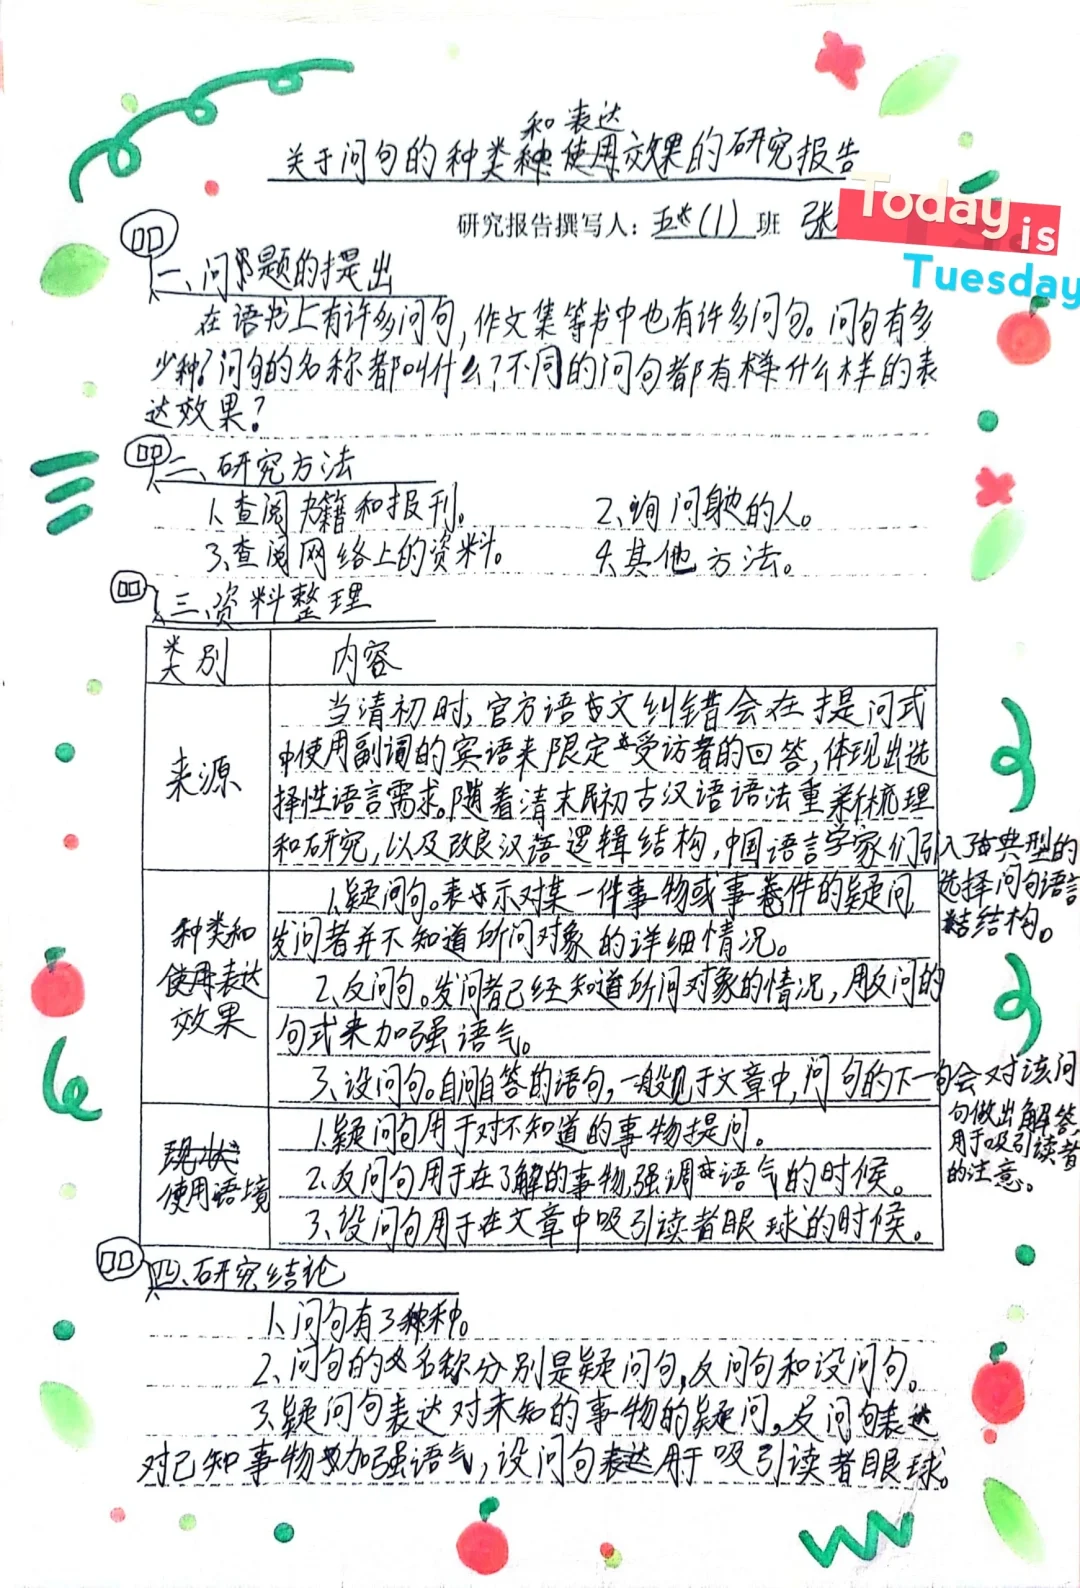 和表达
关于问句的种类使用效果的研究报告
研究报告撰写人：五(1)班 张
Today is
Tuesday
一、问题的提出
在语书上有许多问句，作文集等书中也有许多问句。问句有多
少种？问句的名称都叫什么？不同的问句都有样什么样的表
达效果？
二、研究方法
1、查阅书籍和报刊。 2、询问身边的人。
3、查阅网络上的资料。 4、其他方法。
三、资料整理
类别 内容
来源
当清初时，官方语言文纠错会在提问式
中使用副词的宾语来限定受访者的回答，体现出选
择性语言需求。随着清末民初古汉语语法重新梳理
和研究，以及改良汉语逻辑结构，中国语言学家们引入了典型的
选择问句语言
结构。
种类和
使用表达
效果
1、疑问句。表示对某一件事物或事件的疑问，
发问者并不知道所问对象的详细情况。
2、反问句。发问者已经知道所问对象的情况，用反问的
句式来加强语气。
3、设问句。自问自答的语句，一般见于文章中，问句的下一句会对该问
句做出解答，
用于吸引读者
的注意。
现状
使用语境
1、疑问句用于对不知道的事物提问。
2、反问句用于在了解的事物，强调语气的时候。
3、设问句用于在文章中吸引读者眼球的时候。
四、研究结论
1、问句有3种。
2、问句的名称分别是疑问句，反问句和设问句。
3、疑问句表达对未知的事物的疑问。反问句表达
对已知事物加强语气，设问句表达用于吸引读者眼球。